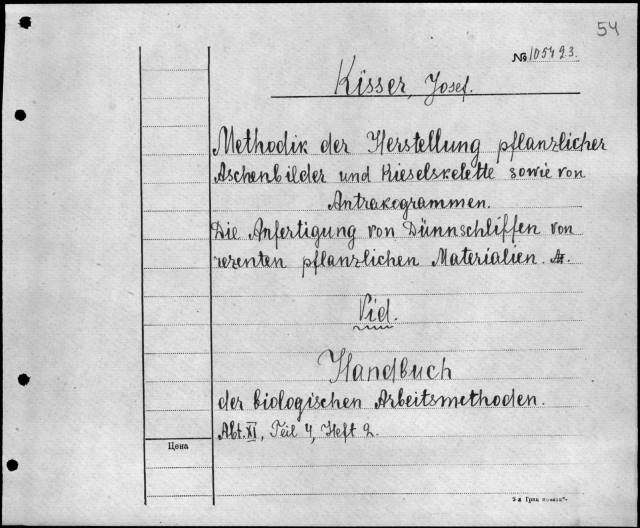 54
№ 105493.
Kisser, Josef.
Methodik der Herstellung pflanzlicher
Aschenbilder und Kieselskelette sowie von
Antrakogrammen.
Die Anfertigung von Dünnschliffen von
rezenten pflanzlichen Materialien.
Vid.
Handbuch
der biologischen Arbeitsmethoden.
Abt. XI, Teil 4, Heft 2.
Цена